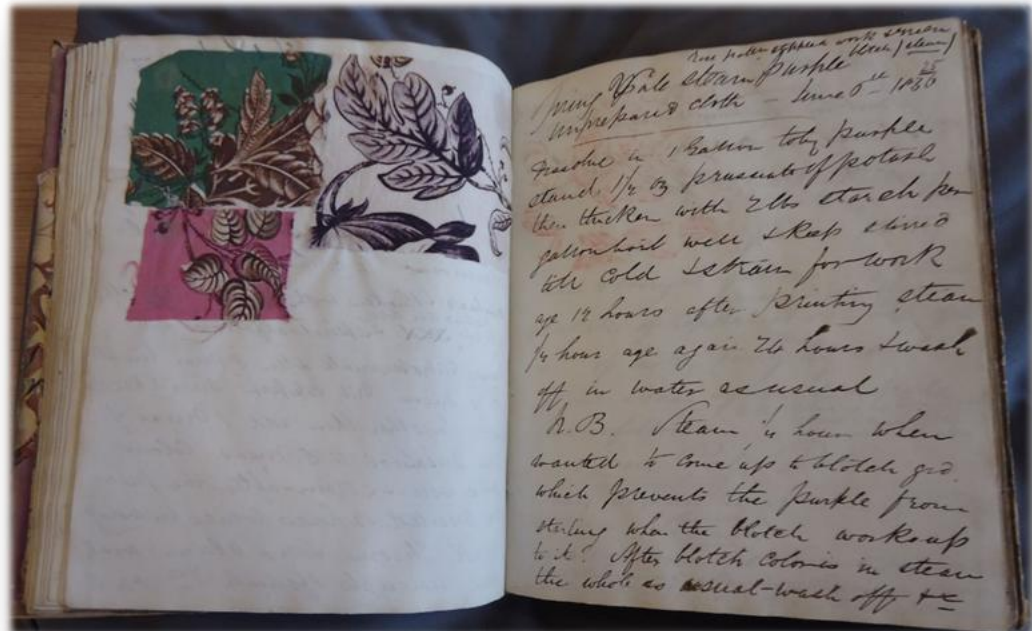 work screen
block (steam)
Spring Vale steam Purple
unprepared cloth — June 6th 1850
25
Dissolve in 1 Gallon purple
stand. 1/2 oz prussiate of potash
then thicken with 2 lbs starch per
gallon boil well & keep stirred
till cold & strain for work
age 12 hours after printing steam
1/4 hour age again 24 hours & wash
off in water as usual
N.B. Steam 1/4 hour when
wanted to come up to blotch grd.
which prevents the purple from
when the blotch works up
to it. After blotch colours in steam
the whole as usual - wash off &c